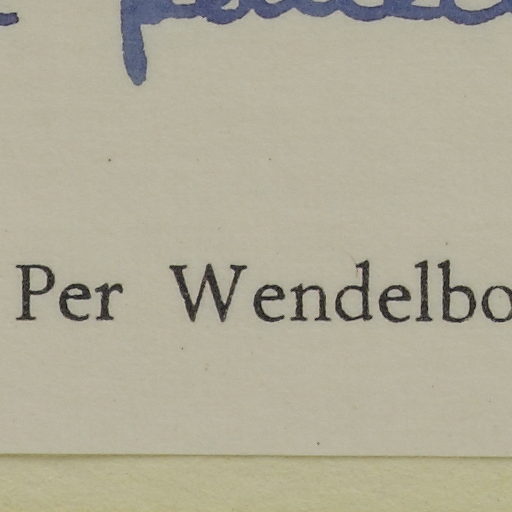 Per Wendelbo